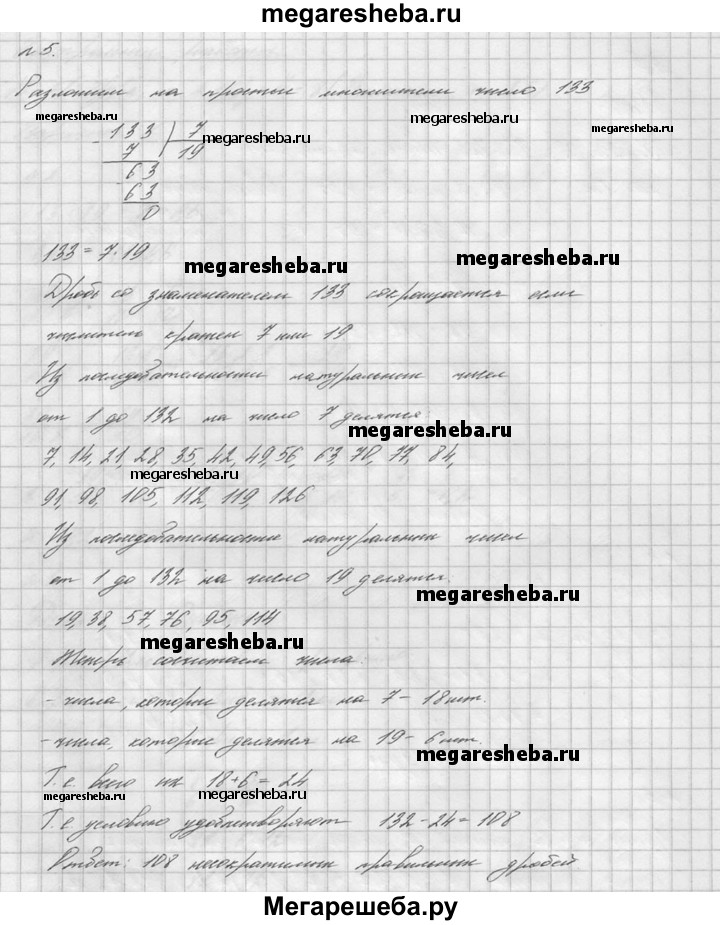 megaresheba.ru
№5.
Разложим на простые множители число 133
megaresheba.ru megaresheba.ru megaresheba.ru
133 | 7
megaresheba.ru
7 19
63
63
0
133 = 7·19
megaresheba.ru megaresheba.ru
Дробь со знаменателем 133 сокращается если
числитель кратен 7 или 19
Из последовательности натуральных чисел
от 1 до 132 на число 7 делятся:
megaresheba.ru
7, 14, 21, 28, 35, 42, 49, 56, 63, 70, 77, 84,
megaresheba.ru
91, 98, 105, 112, 119, 126
Из последовательности натуральных чисел
от 1 до 132 на число 19 делятся:
megaresheba.ru
19, 38, 57, 76, 95, 114
megaresheba.ru
Теперь сосчитаем числа:
- числа, которые делятся на 7 - 18 шт.
- числа, которые делятся на 19 - 6 шт.
megaresheba.ru
Т.е. всего их 18+6=24
megaresheba.ru megaresheba.ru
Т.е условию удовлетворяют 132-24=108
Ответ: 108 несократимых правильных дробей
Мегарешеба.ру